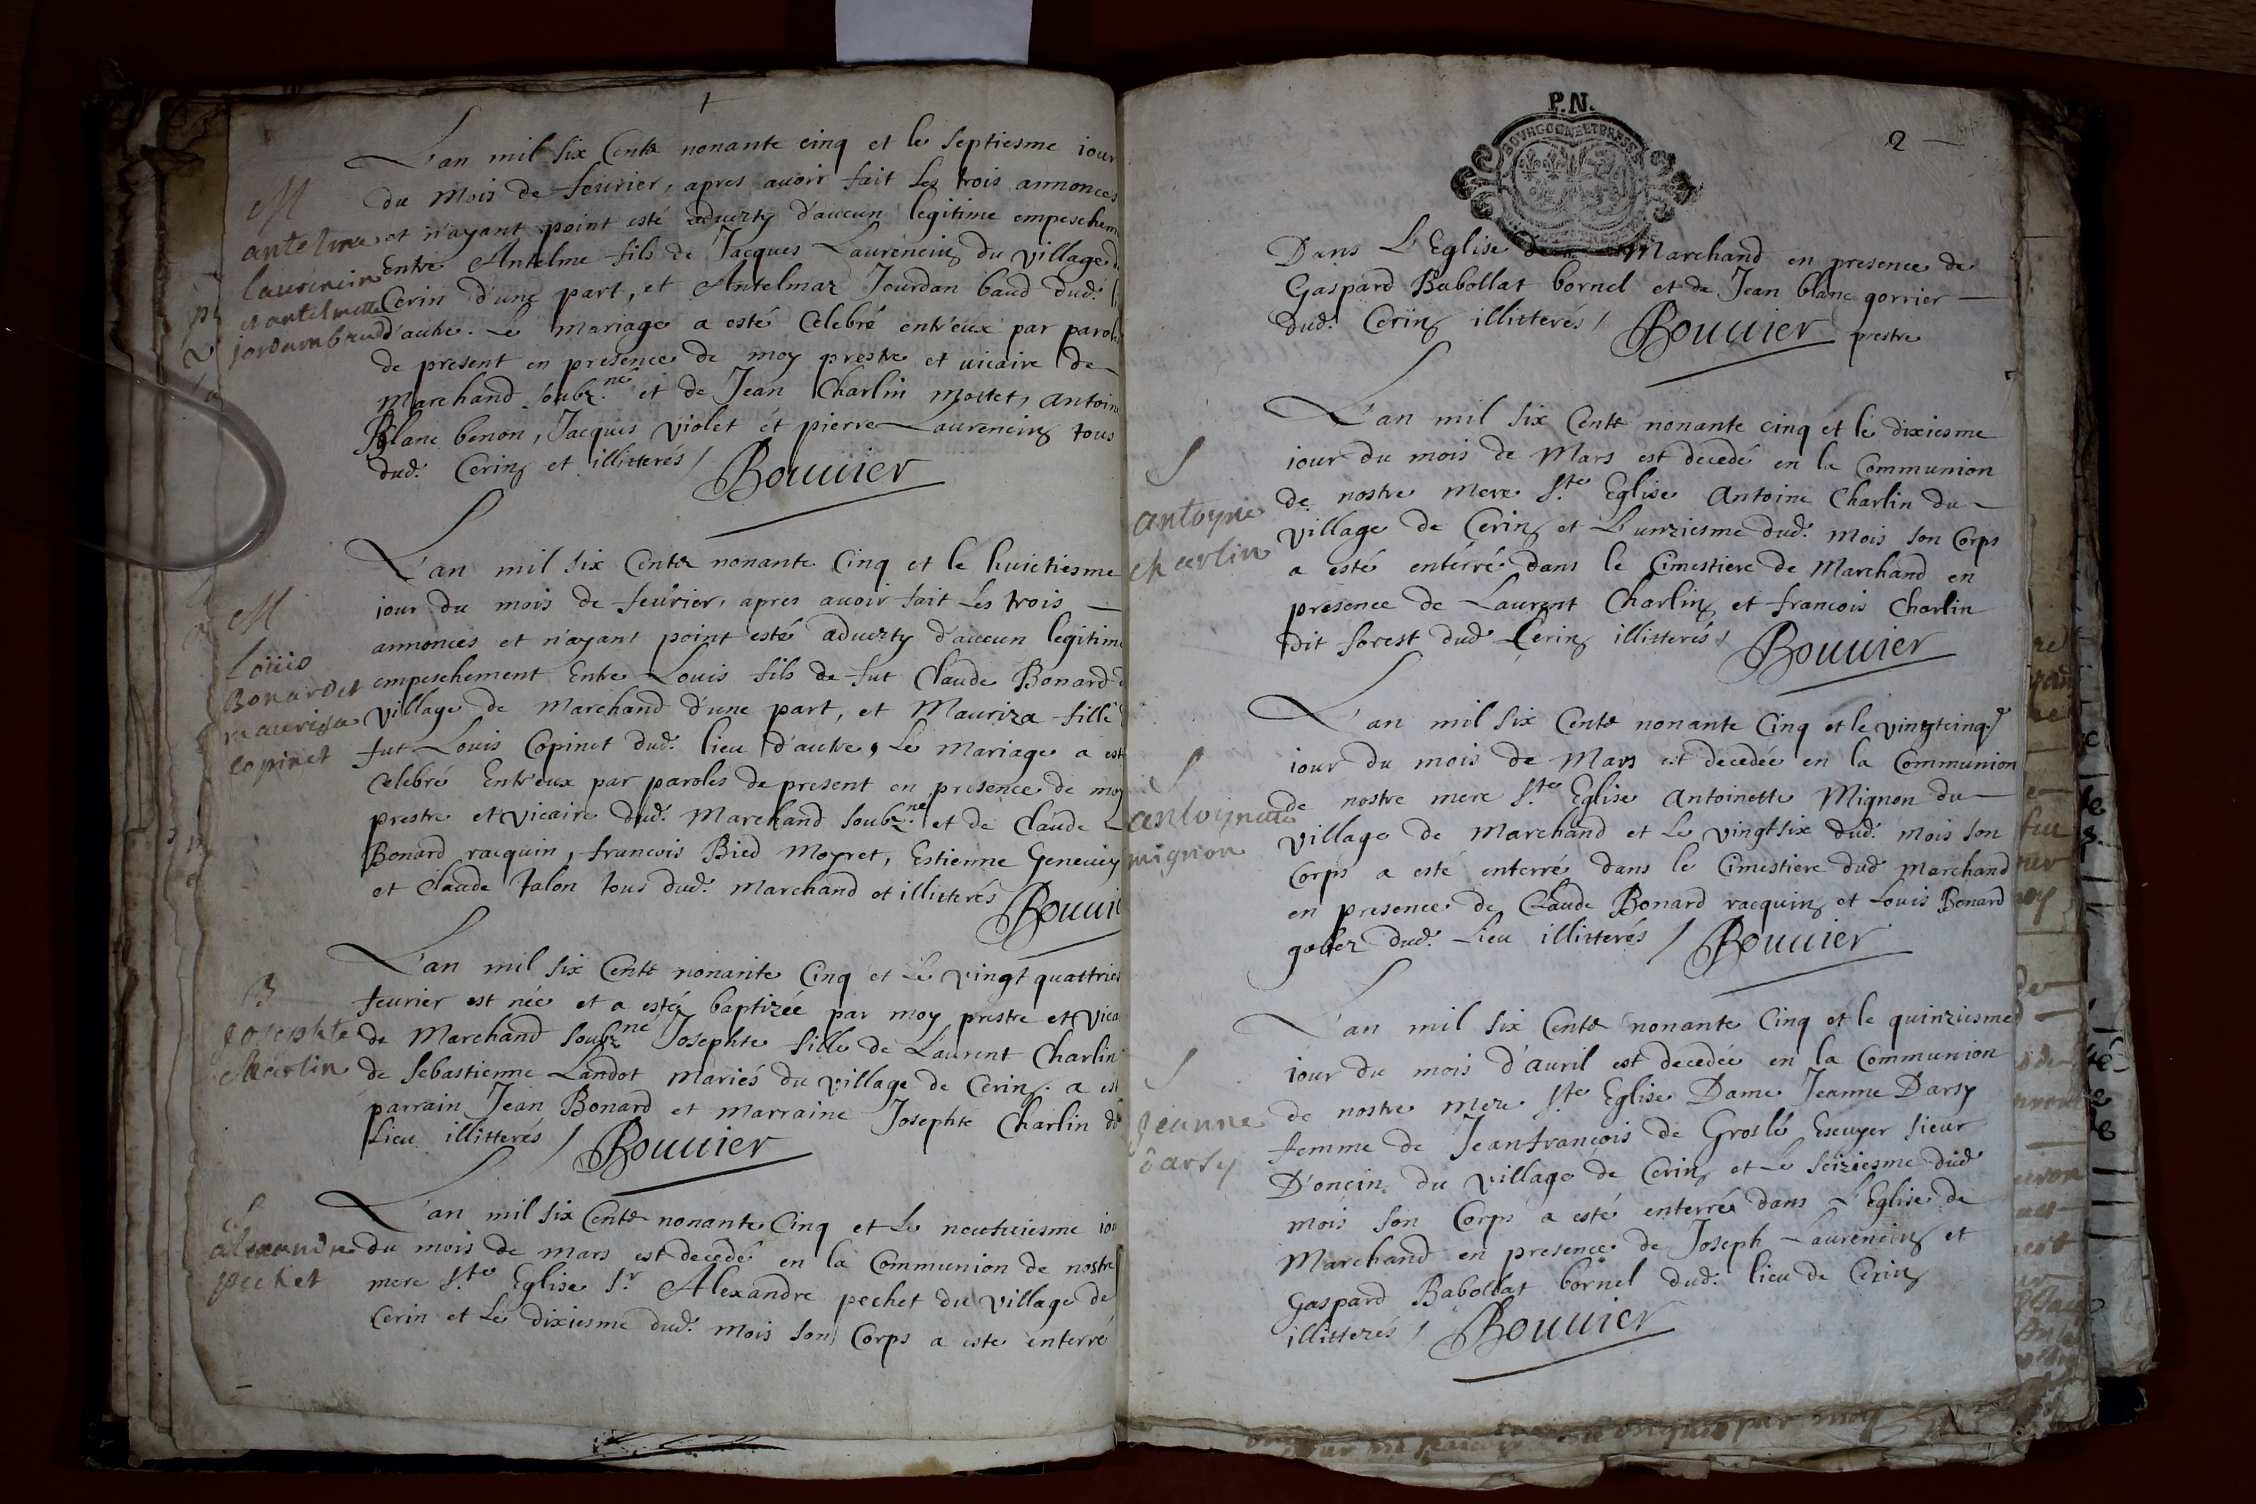 1
L'an mil six Centz nonante cinq et le septiesme iour
du mois de feurier, apres auoir fait les trois annonces
et n'ayant point esté aduerty d'aucun legitime empeschem
Entre Antelme fils de Jacques Laurencin du village d
Cerin d'une part, et Antelmaz Jourdan baud dud. li
d'autre. Le mariage a esté celebré entr'eux par paroles
de present en presence de moy prestre et vicaire de
Marchand soubz.né et de Jean Charlin mottet, antoine
Blanc benon, Jacques violet et pierre Laurencin tous
dud. Cerin et illitterés / Bouuier
M
antelme
laurencin
et antelmette
jordan baud
L'an mil six Centz nonante Cinq et le huictiesme
iour du mois de feurier, apres auoir fait les trois
annonces et n'ayant point esté aduerty d'aucun legitime
empeschement Entre Louis fils de fut Claude Bonard d
village de Marchand d'une part, et Mauriza fille
fut Louis Copinet dud. lieu d'autre, Le Mariage a est
celebré Entr'eux par paroles de present en presence de moy
prestre et vicaire dud. Marchand soubz.né et de Claude
Bonard racquin, francois Bied Moyret, Estienne Geneuey
et Claude talon tous dud. Marchand et illitterés Bouuie
M
Louis
Bonardet
mauriza
copinet
L'an mil six Centz nonante Cinq et Le vingt quattries
feurier est née et a esté baptizée par moy prestre et vica
de Marchand soubz.né Josephte fille de Laurent Charlin
de Sebastienne Landot mariés du village de Cerin. a est
parrain Jean Bonard et marraine Josephte Charlin dud
Lieu illitterés / Bouuier
B
Josephte
charlin
L'an mil six Centz nonante Cinq et Le neufuiesme iou
du mois de mars est decedé en la Communion de nostre
mere S.te Eglise S.r Alexandre pechet du village de
Cerin et Le dixiesme dud. mois son Corps a esté enterré
S
alexandre
pechet
P.N.
BOURGOGNE ET BRESSE
2
Dans L'Eglise de Marchand en presence de
Gaspard Babollat bornel et de Jean blanc gorrier
dud. Cerin illitterés / Bouuier prestre
L'an mil six Centz nonante cinq et le dixiesme
iour du mois de Mars est decedé en la Communion
de nostre mere S.te Eglise Antoine Charlin du
village de Cerin et L'unziesme dud. mois son Corps
a esté entérré dans le Cimestiere de Marchand en
presence de Laurent Charlin et francois Charlin
dit forest dud. Cerin illitterés / Bouuier
S
antoyne
charlin
L'an mil six Centz nonante Cinq et le vingtcinq.e
iour du mois de Mars est decedée en la Communion
de nostre mere S.te Eglise Antoinette Mignon du
village de Marchand et Le vingtsix dud. mois son
Corps a esté enterré dans le Cimestiere dud. Marchand
en presence de Claude Bonard racquin et Louis Bonard
gobez dud. Lieu illitterés / Bouuier
S
antoynette
mignon
L'an mil six Centz nonante Cinq et le quinziesme
iour du mois d'auril est decedée en la Communion
de nostre mere S.te Eglise Dame Jeanne Darsy
femme de Jeanfrancois de Groslé Escuyer sieur
D'oncin du village de Cerin et Le seiziesme dud.
mois son Corps a esté enterré dans L'Eglise de
Marchand en presence de Joseph Laurencin et
Gaspard Babollat bornel dud. lieu de Cerin
illitterés / Bouuier
S
Jeanne
darsy